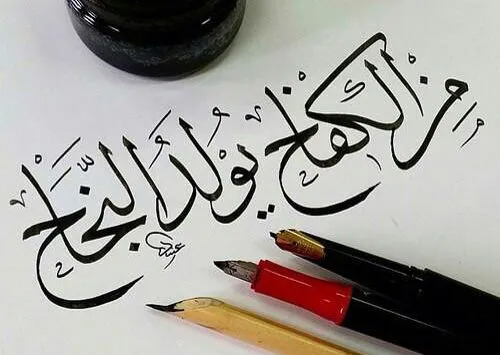 من الكفاح يولدُ النَّجَاح